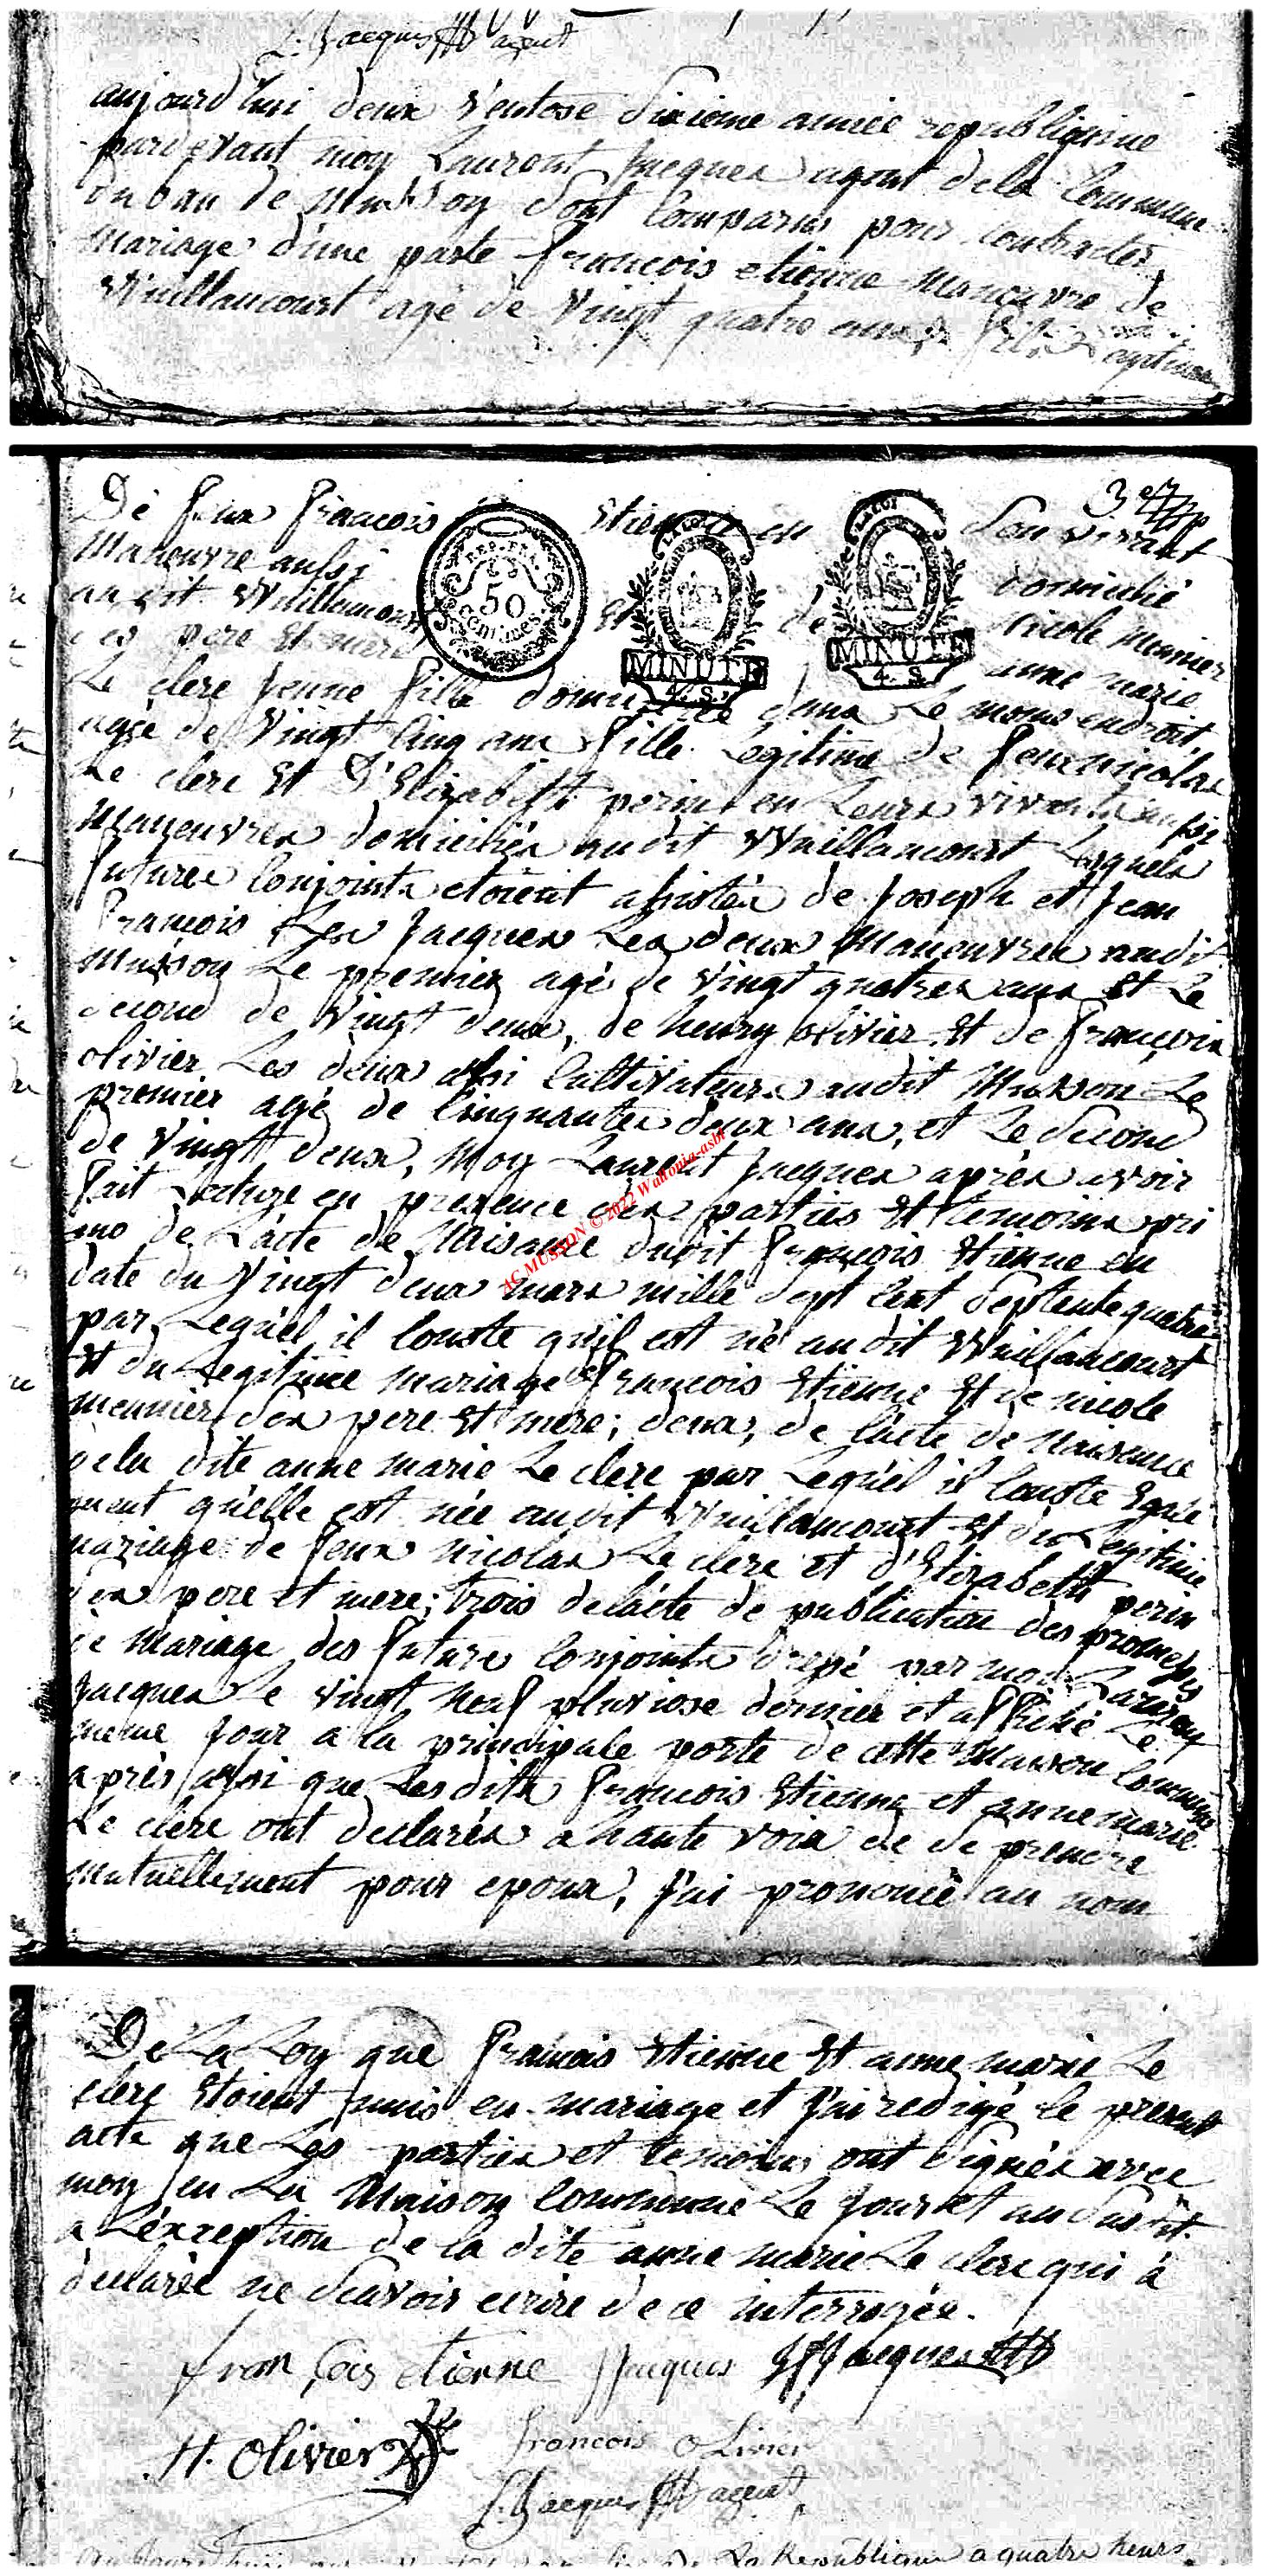 L. Jacques agent
aujourd'hui deux ventose sixieme année republiquaine
pardevant moy Laurent Jacques agent dela Commune
du ban de Musson sont Comparus pour contracter
Mariage d'une parte François etienne manouvre de
Wuillancourt agé de vingt quatre ans, fils Legitime
3e
De feux François Etienne en Son vivant
Manouvre aussi domicilié
au dit Wuillancourt Et de Nicole Munier
ses pere Et mere anne marie
Le clere jeune fille domiciliée dans Le meme endroit
agée de vingt Cinq ans fille Legitime de feux nicolas
Le clere Et D'Elizabeth perin en Leurs vivants aussi
Manouvres domiciliés audit Wuillancourt Lesquels
futures Conjoints etoient assistés de Joseph et Jean
François Les Jacques Les deux Manouvres audit
Musson Le premier agé de vingt quatres ans Et Le
second de vingt deux, de henry olivier Et de François
olivier Les deux aussi Cultivateurs audit Musson Le
premier agé de Cinquantes deux ans, et Le Second
de vingt deux, Moy Laurent Jacques après avoir
fait Lecture en presence des parties Et temoins pri
mo de L'acte de Naisance dudit François Etienne en
date du vingt deux mars mille Sept Cent Septante quatre
par Lequel il Conste qu'il est né audit Wuillancourt
Et du Legitime mariage de François Etienne Et de nicole
meunier ses pere Et mere; deux, de l'acte de Naissance
dela dite anne marie Le clere par Lequel il Conste Egale
ment quélle est née audit Wuillancourt Et du Legitime
mariage de feux nicolas Le clere et d'Elizabeth perin
ses pere et mere; trois del'acte de publication des promesses
de Mariage des futurs Conjoints drepé par moi Laurent
Jacques Le vingt neuf pluviose dernier et affiché Le
meme jour a la principale porte de cette Maison Commune
après aussi que Lesdits François Etienne et anne marie
Le clere ont declarés a haute voix de se prendre
mutuellement pour epoux, J'ai prononcé au nom
AC MUSSON © 2022 Wallonia-asbl
De La Loy que François Etienne Et anne marie Le
clere Etoient unis en mariage et J'ai redigé le present
acte que Les parties et temoins ont signés avec
moy en La Maison Commune Le jour et an Susdit
a L'éxception de la dite anne marie Le clere qui à
declarée ne Scavoir ecrire de ce interrogée.
fran çois etienne JJacques JfJacques
H. Olivier François OLivier
L. Jacques agent
La Republique a quatre heurs